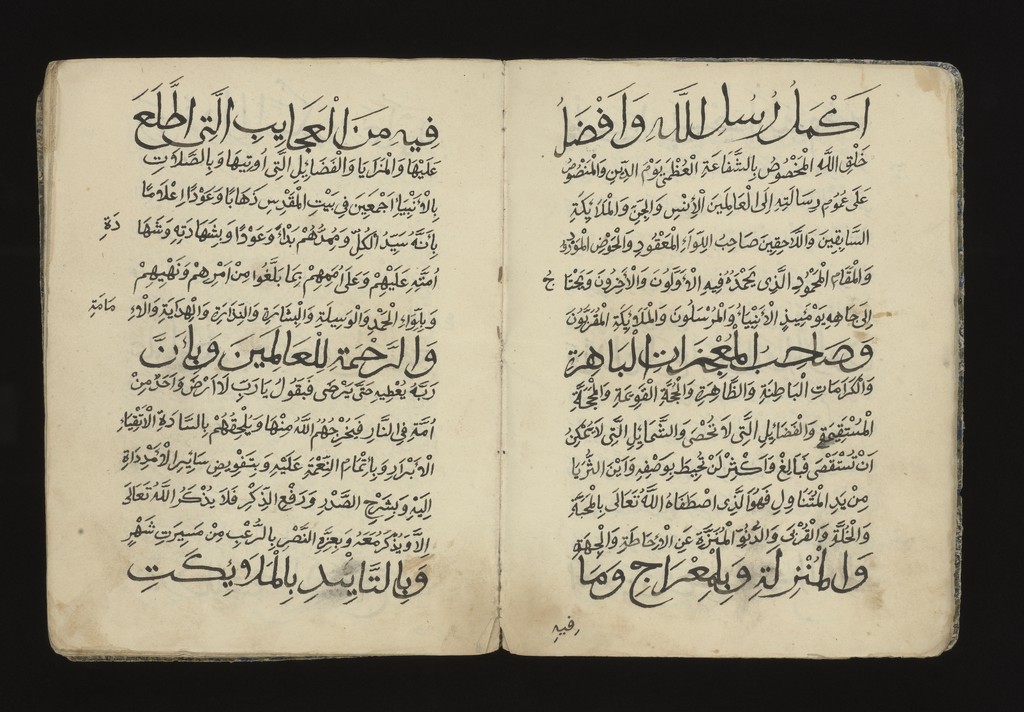 اَكْمَلُ رُسُلِ اللّٰهِ وَاَفْضَلُ
خَلْقِ اللّٰهِ الْمَخْصُوصُ بِالشَّفَاعَةِ الْعُظْمٰى يَوْمَ الدِّينِ وَالْمَنْصُوصُ
عَلٰى عُمُومِ رِسَالَتِهِ اِلَى الْعَالَمِينَ الْاِنْسِ وَالْجِنِّ وَالْمَلَايِكَةِ
السَّابِقِينَ وَاللَّاحِقِينَ صَاحِبُ اللِّوَاءِ الْمَعْقُودِ وَالْحَوْضِ الْمَوْرُودِ
وَالْمَقَامِ الْمَحْمُودِ الَّذِى يَحْمَدُهُ فِيهِ الْاَوَّلُونَ وَالْاٰخِرُونَ وَيَحْتَاجُ
اِلٰى جَاهِهِ يَوْمَئِيذٍ الْاَنْبِيَاءُ وَالْمُرْسَلُونَ وَالْمَلَايِكَةُ الْمُقَرَّبُونَ
وَصَاحِبُ الْمُعْجِزَاتِ الْبَاهِرَةِ
وَالْكَرَامَاتِ الْبَاطِنَةِ وَالظَّاهِرَةِ وَالْحُجَّةِ الْقَوِيمَةِ وَالْمَحَجَّةِ
الْمُسْتَقِيمَةِ وَالْفَضَايِلِ الَّتِى لَا تُحْصٰى وَالشَّمَايِلِ الَّتِى لَا يُمْكِنُ
اَنْ تُسْتَقْصٰى فَبَالِغْ وَاَكْثِرْ لَنْ تُحِيطَ بِوَصْفِهِ وَاَيْنَ الثُّرَيَّا
مِنْ يَدِ الْمُتَنَاوِلِ فَهُوَ الَّذِى اصْطَفَاهُ اللّٰهُ تَعَالٰى بِالْمَحَبَّةِ
وَالْخُلَّةِ وَالْقُرْبٰى وَالدُّنُوِّ الْمُنَزَّهِ عَنِ الْاِحَاطَةِ وَالْجِهَةِ
وَالْمَنْزِلَةِ وَبِالْمِعْرَاجِ وَمَا
فِيهِ
فِيهِ مِنَ الْعَجَايِبِ الَّتِى اطَّلَعَ
عَلَيْهَا وَالْمَزَايَا وَالْفَضَايِلِ الَّتِى اُوتِيَهَا وَبِالصَّلَاةِ
بِالْاَنْبِيَاءِ اَجْمَعِينَ فِى بَيْتِ الْمَقْدِسِ ذَهَابًا وَعَوْدًا اِعْلَامًا
بِاَنَّهُ سَيِّدُ الْكُلِّ وَمُمِدُّهُمْ بَدْاً وَعَوْدًا وَبِشَهَادَتِهِ وَشَهَادَةِ
اُمَّتِهِ عَلَيْهِمْ وَعَلٰى اُمَمِهِمْ بِمَا بَلَّغُوا مِنْ اَمْرِهِمْ وَنَهْيِهِمْ
وَبِلِوَاءِ الْحَمْدِ وَالْوَسِيلَةِ وَالْبِشَارَةِ وَالنِّذَارَةِ وَالْهِدَايَةِ وَالْاِمَامَةِ
وَالرَّحْمَةِ لِلْعَالَمِينَ وَبِاَنَّ
رَبَّهُ يُعْطِيهِ حَتّٰى يَرْضٰى فَيَقُولُ يَا رَبِّ لَا اَرْضٰى وَاَحَدٌ مِنْ
اُمَّتِى فِى النَّارِ فَيُخْرِجُهُمُ اللّٰهُ مِنْهَا وَيُلْحِقُهُمْ بِالسَّادَةِ الْاَتْقِيَاءِ
الْاَبْرَارِ وَبِاِتْمَامِ النِّعْمَةِ عَلَيْهِ وَبِتَفْوِيضِ سَايِرِ الْاِمْدَادَاتِ
اِلَيْهِ وَبِشَرْحِ الصَّدْرِ وَرَفْعِ الذِّكْرِ فَلَا يُذْكَرُ اللّٰهُ تَعَالٰى
اِلَّا وَيُذْكَرُ مَعَهُ وَبِعِزَّةِ النَّصْرِ بِالرُّعْبِ مِنْ مَسِيرَتِ شَهْرٍ
وَبِالتَّايِيدِ بِالْمَلَايِكَتِ